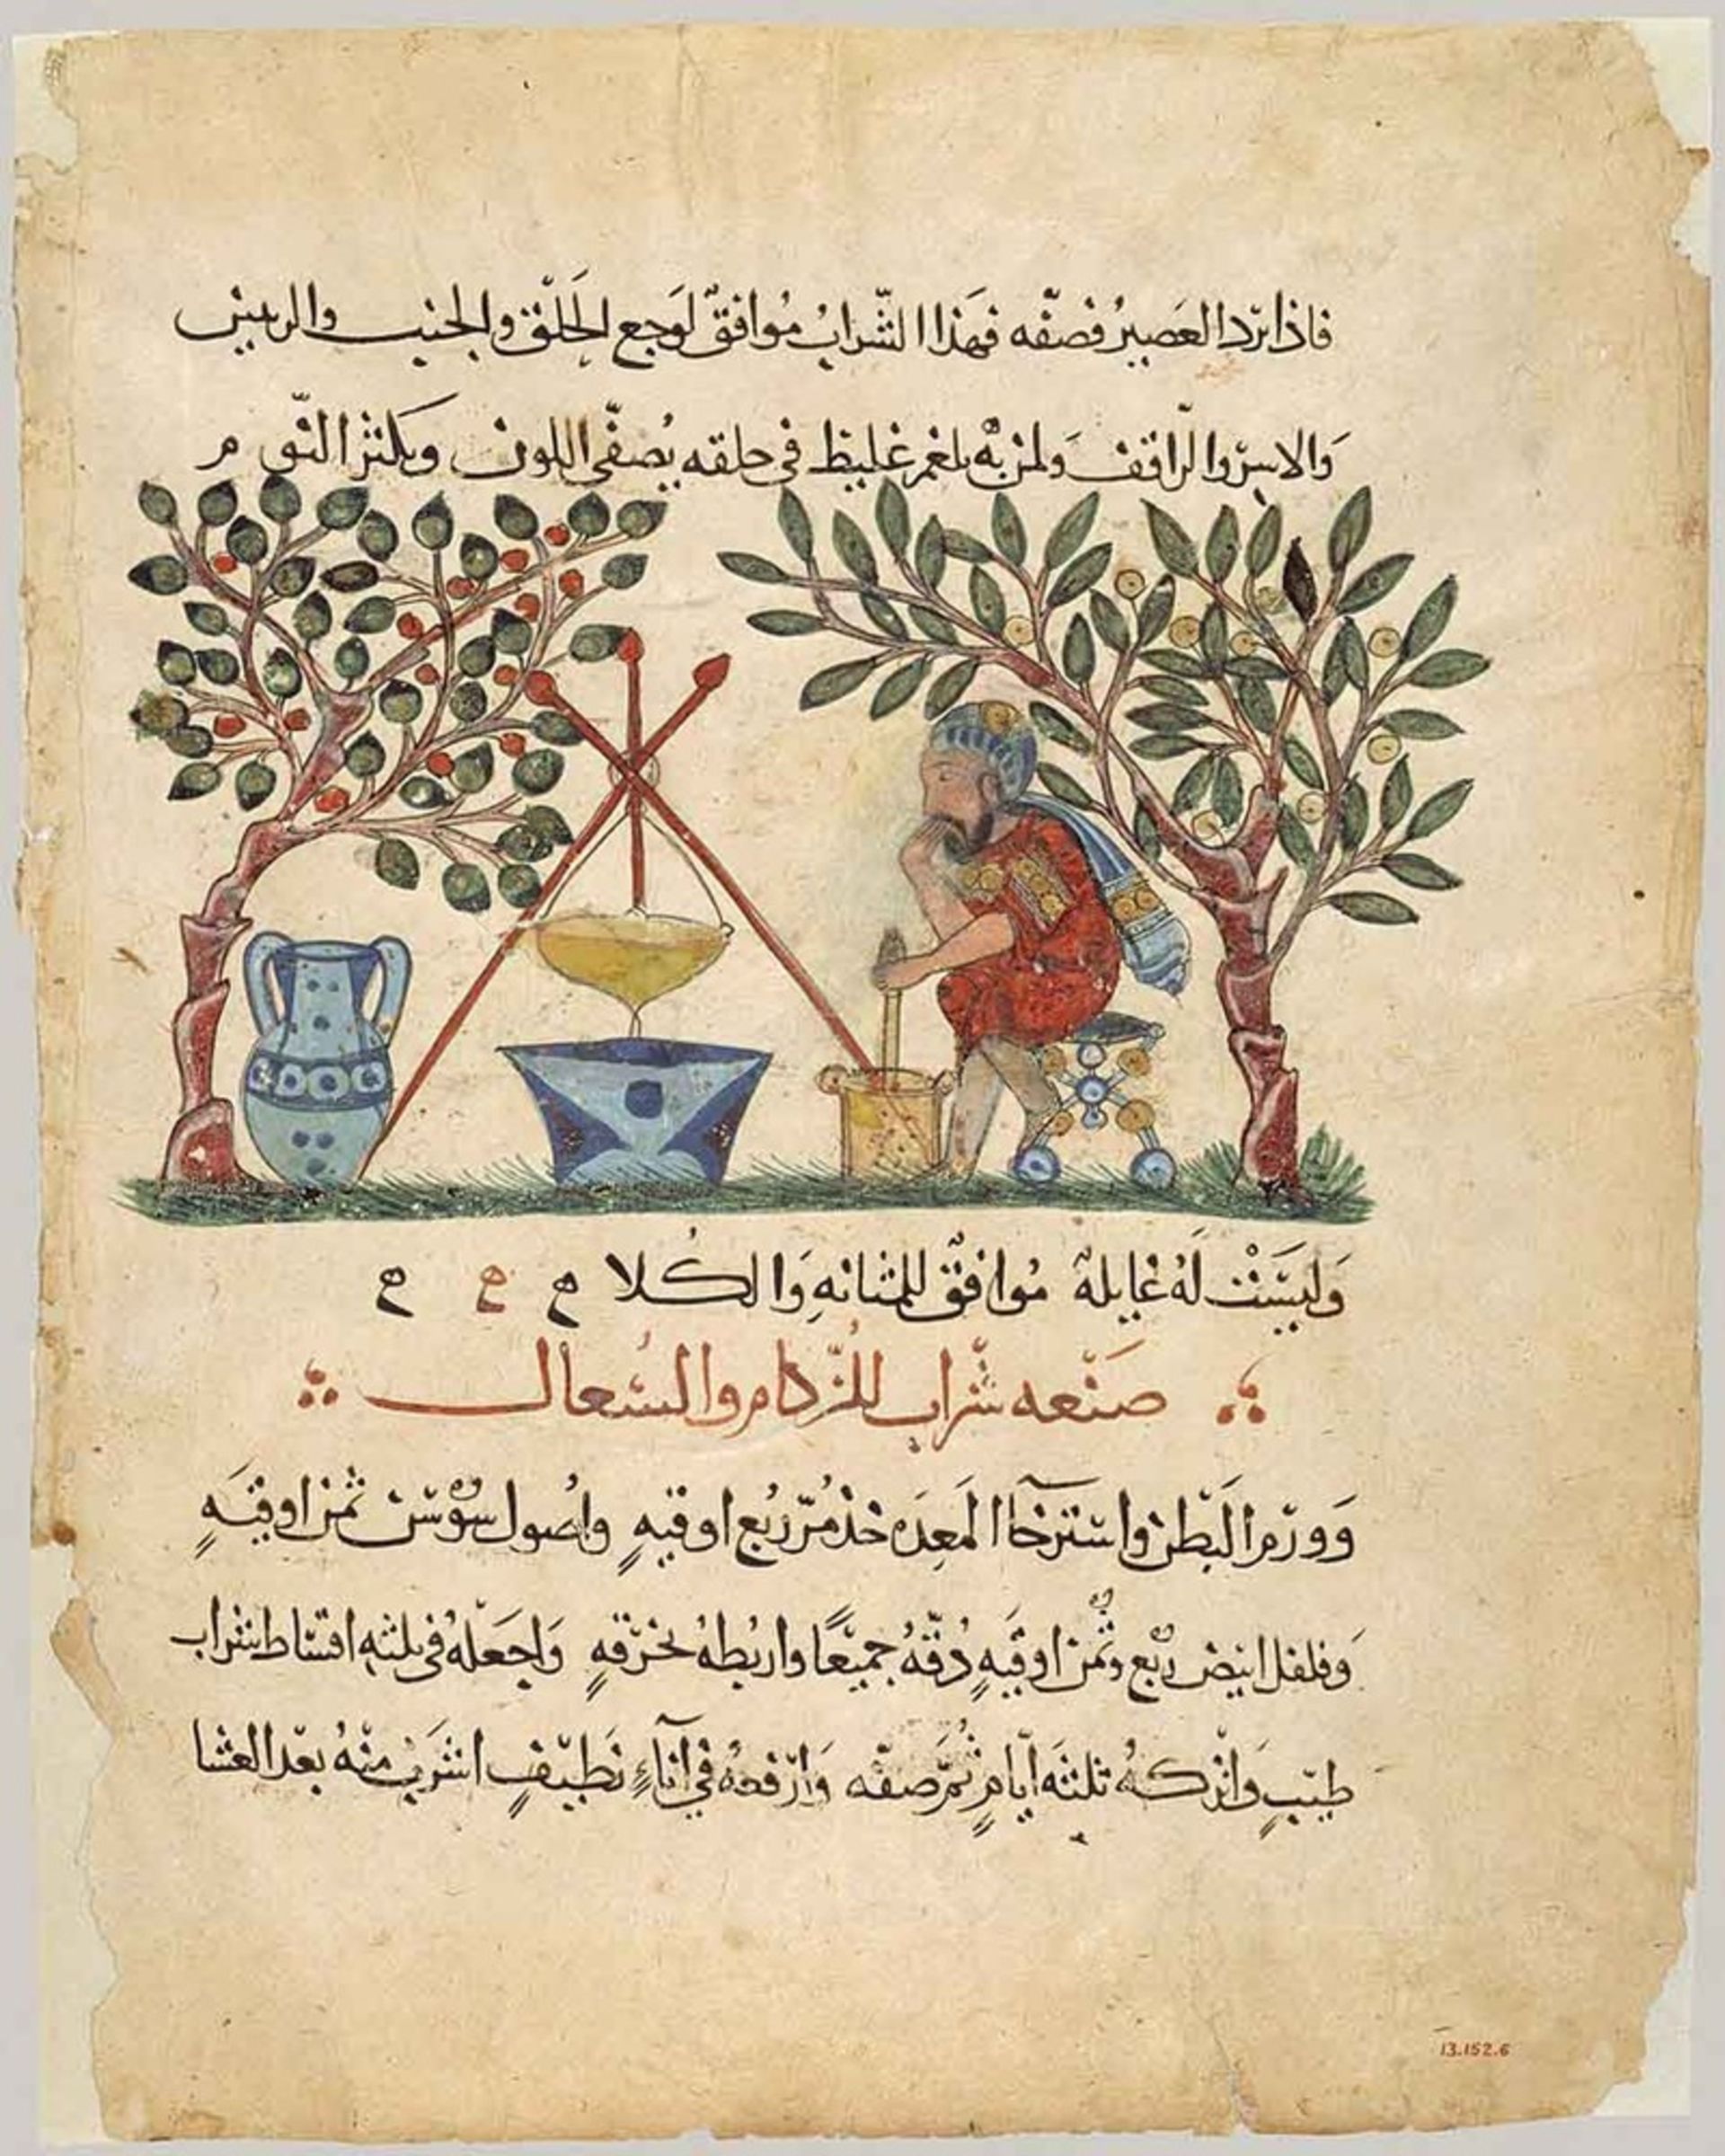 فاذا برد العصير فصفه فهذا الشراب موافق لوجع الحلق والجنب والريتين
والاسر والراقف ولمن به بلغم غليظ في حلقه يصفي اللون ويكثر النوم
وليست له غايلة موافق للمثانه والكلا ح ح ح
صنعه شراب للزكام والسعال
وورم البطن واسترخا المعده خذ مر ربع اوقيه واصول سوسن ثمن اوقيه
وفلفل ابيض ربع وثمن اوقيه دقه جميعا واربطه بخرقه واجعله في ثلثه اقساط شراب
طيب واتركه ثلثه ايام ثم صفه وارفعه في اناء نظيف اشرب منه بعد العشا
13.152.6